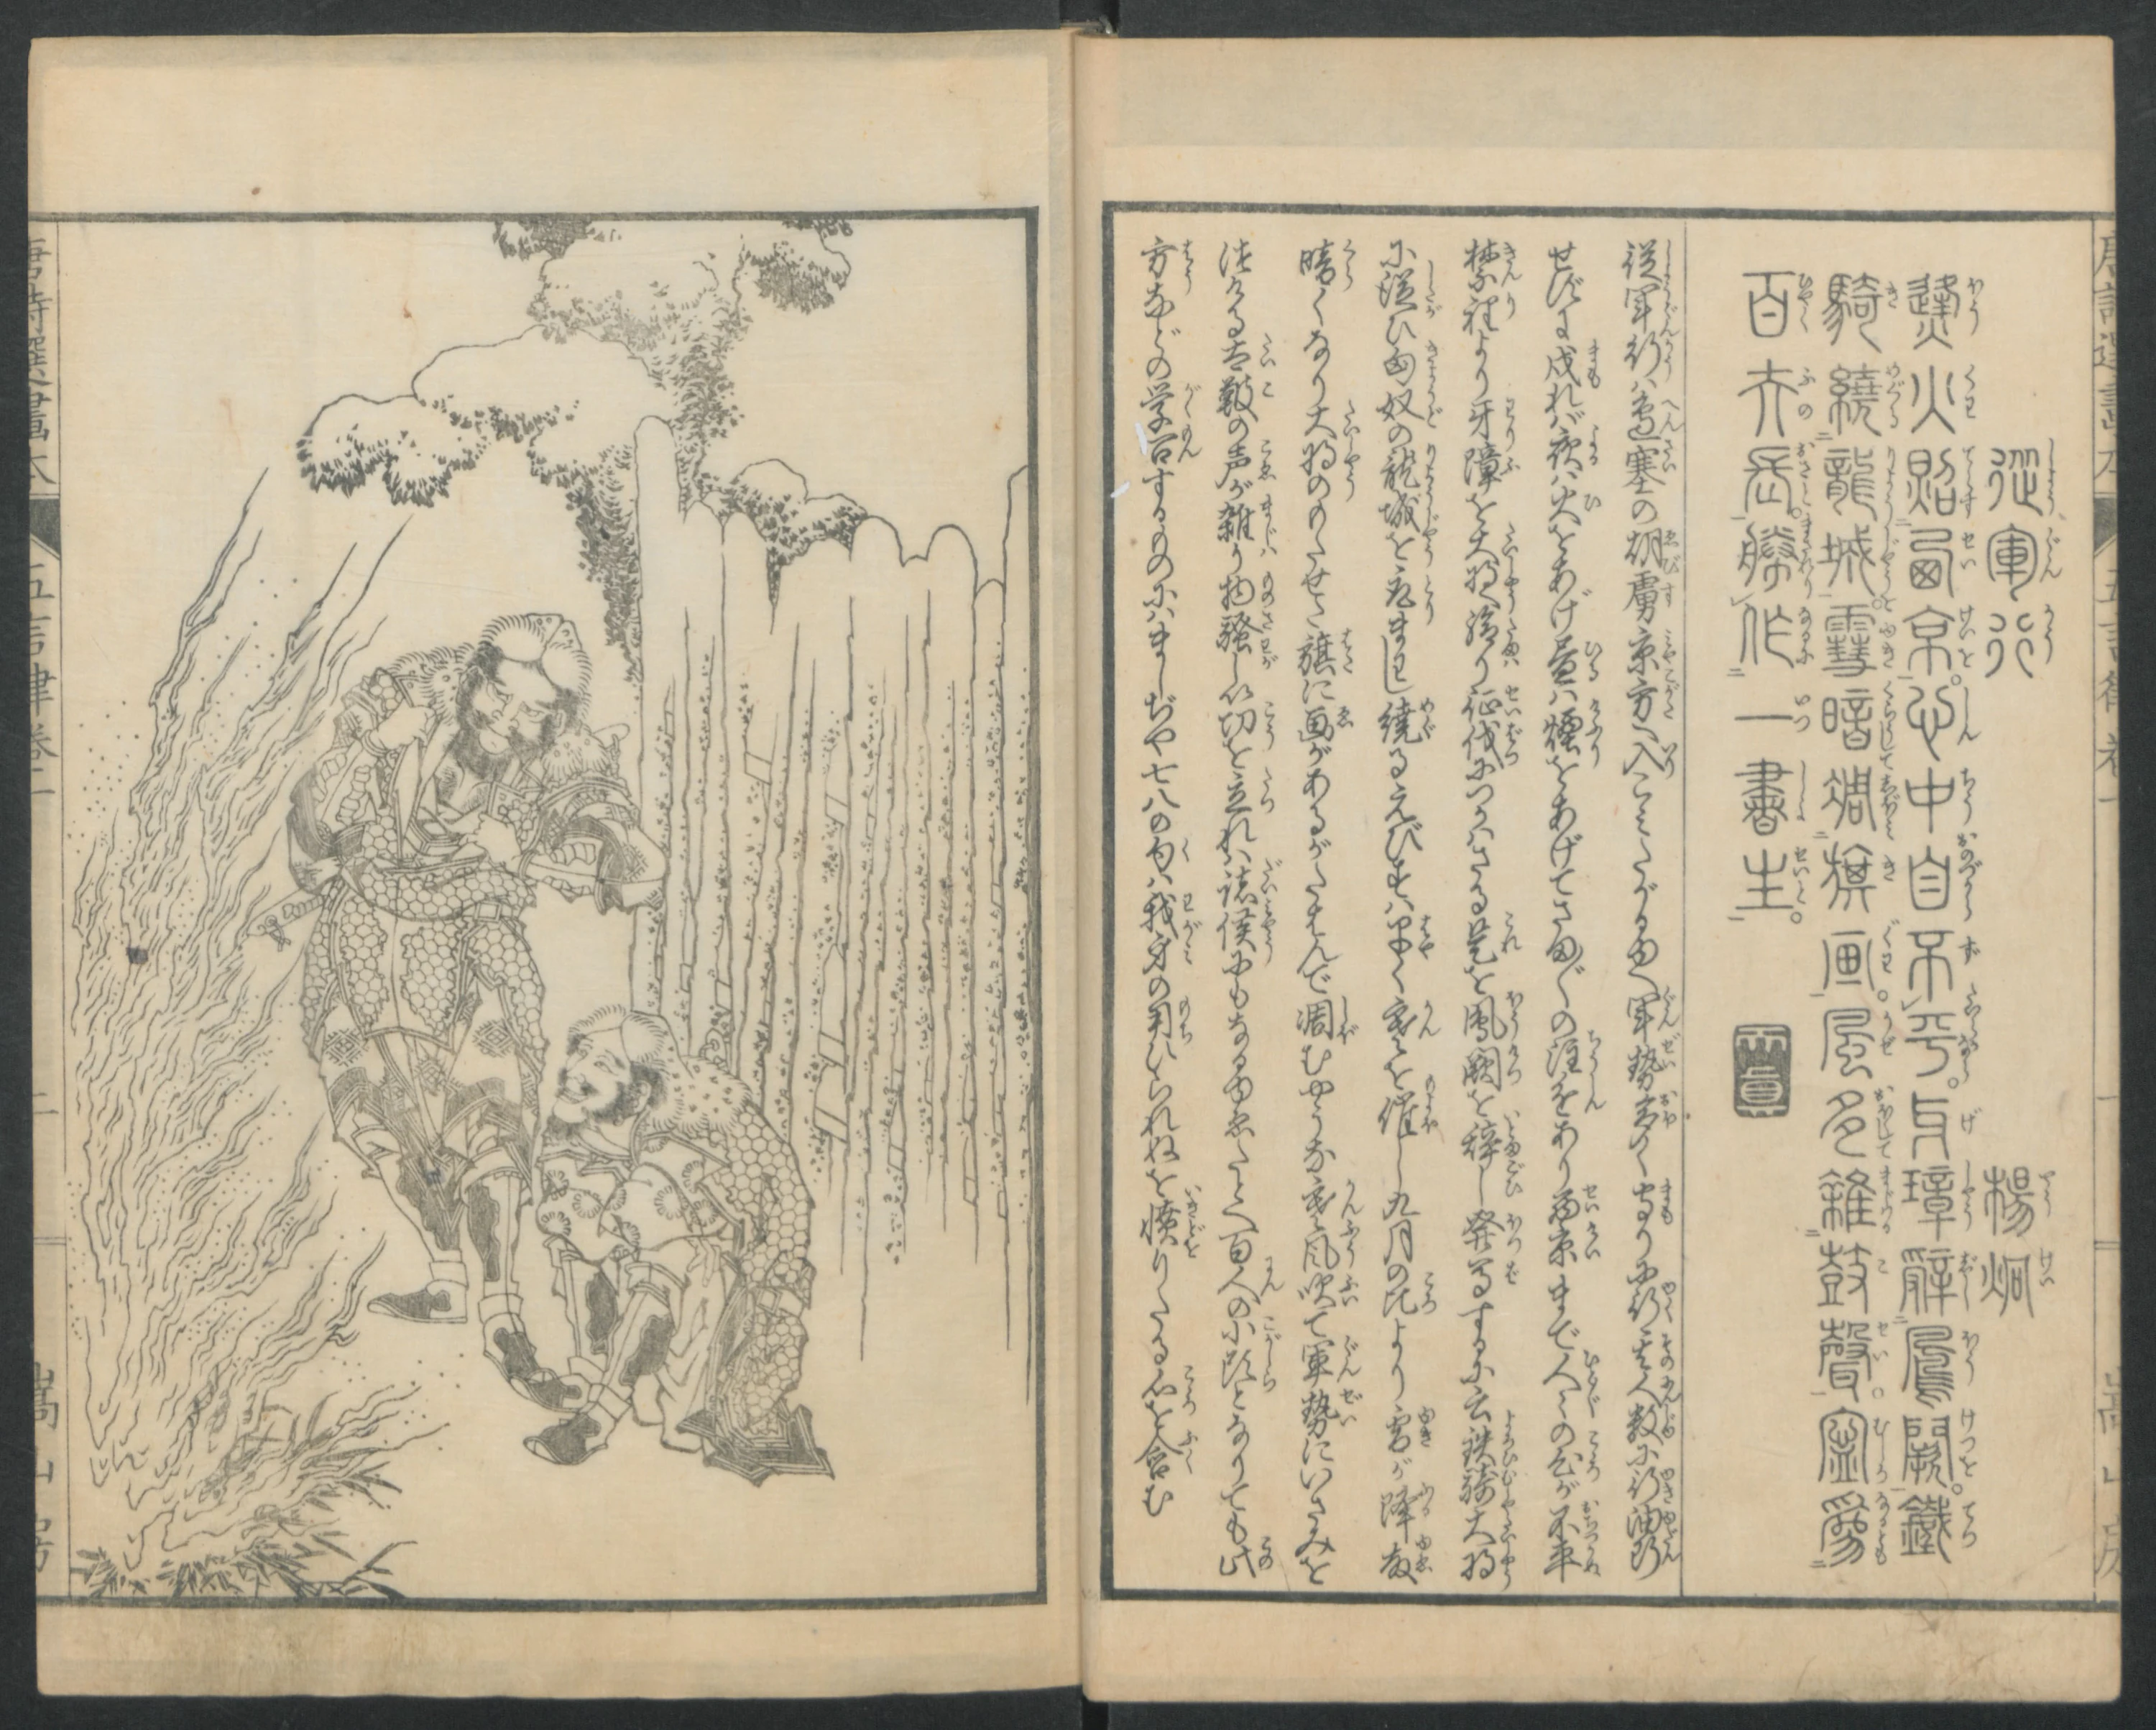 唐詩選畫本 五言律巻一 一 嵩山房
從軍行 楊炯
烽火照西京。心中自不平。牙璋辭鳳闕。鐵
騎繞龍城。雪暗凋旗画。風多雜鼓聲。寧爲
百夫長。勝作一書生。
従軍行ハ邉塞の胡虜京方へ入こみたがるゆへ軍勢多く守りに行其人数に行油断
せずに戍れバ夜ハ火をあげ昼ハ煙をあげてさま〴〵の注進あり西京まで人々の心が不平
禁裡より牙障を大将へ給り征伐につかハさる是を鳳闕を辞し発るするに云鉄騎大将
に従ひ匈奴の龍城を取まはし繞るえびすハ早く寒を催し九月の比より雪が降故
暗くなり大将のもたせた旗に画があるがいたんで凋むやうな寒風吹て軍勢にいさみを
付る太鼓の声が雑り物騒し功を立れバ諸侯にもなるゆゑたとへ百人の小頭となりても此
方などの学问するものにハましぢや七八の句ハ我身の用いられぬを憤りたる心を含む
唐詩選畫本 五言律巻一 二 嵩山房